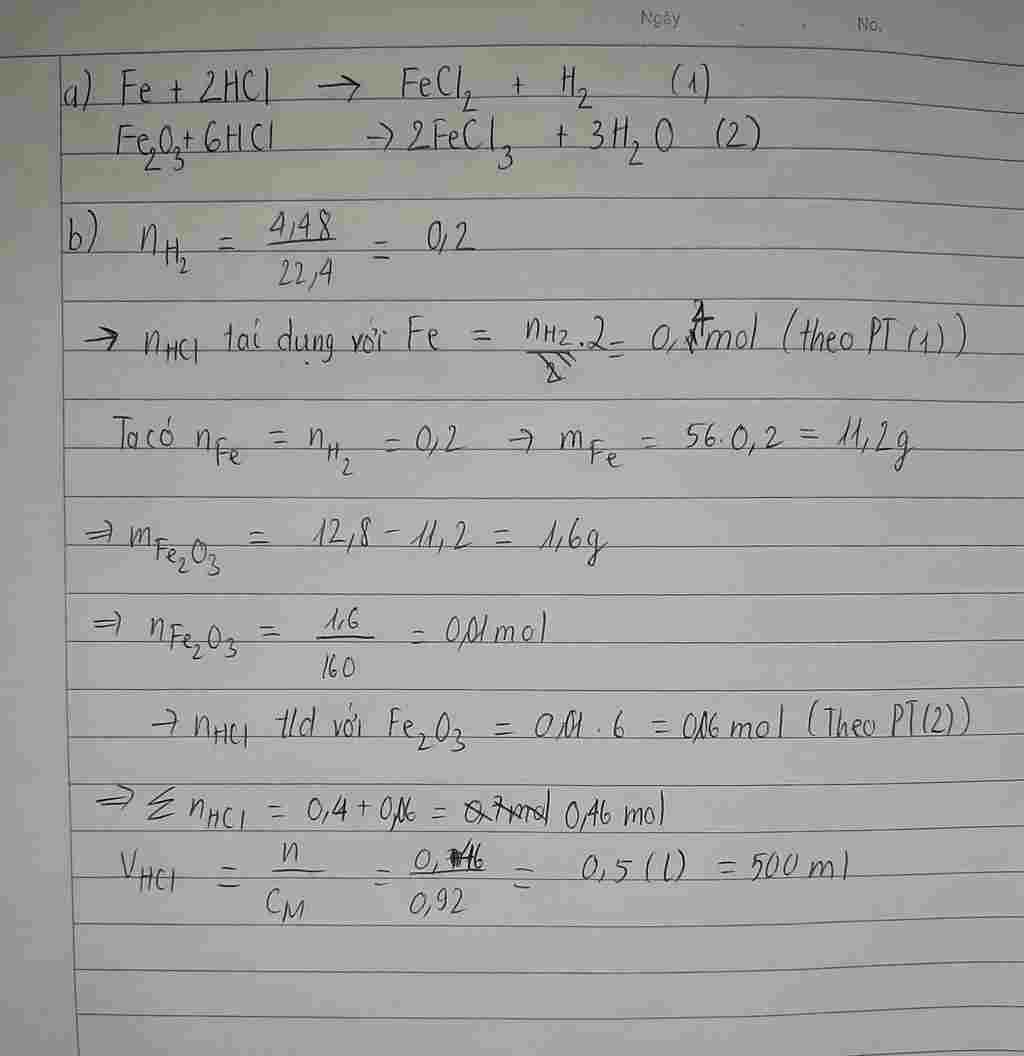 Ngày . . No.
a) Fe + 2HCl → FeCl₂ + H₂ (1)
Fe₂O₃ + 6HCl → 2FeCl₃ + 3H₂O (2)
b) nH₂ = 4,48/22,4 = 0,2
→ nHCl tác dụng với Fe = nH2.2 = 0,4mol (theo PT(1))
Ta có nFe = nH₂ = 0,2 → mFe = 56.0,2 = 11,2g
⇒ mFe₂O₃ = 12,8 - 11,2 = 1,6g
⇒ nFe₂O₃ = 1,6/160 = 0,01mol
→ nHCl t/d với Fe₂O₃ = 0,01.6 = 0,06 mol (Theo PT(2))
⇒ Σ nHCl = 0,4 + 0,06 = 0,46 mol
VHCl = n/CM = 0,46/0,92 = 0,5 (l) = 500 ml